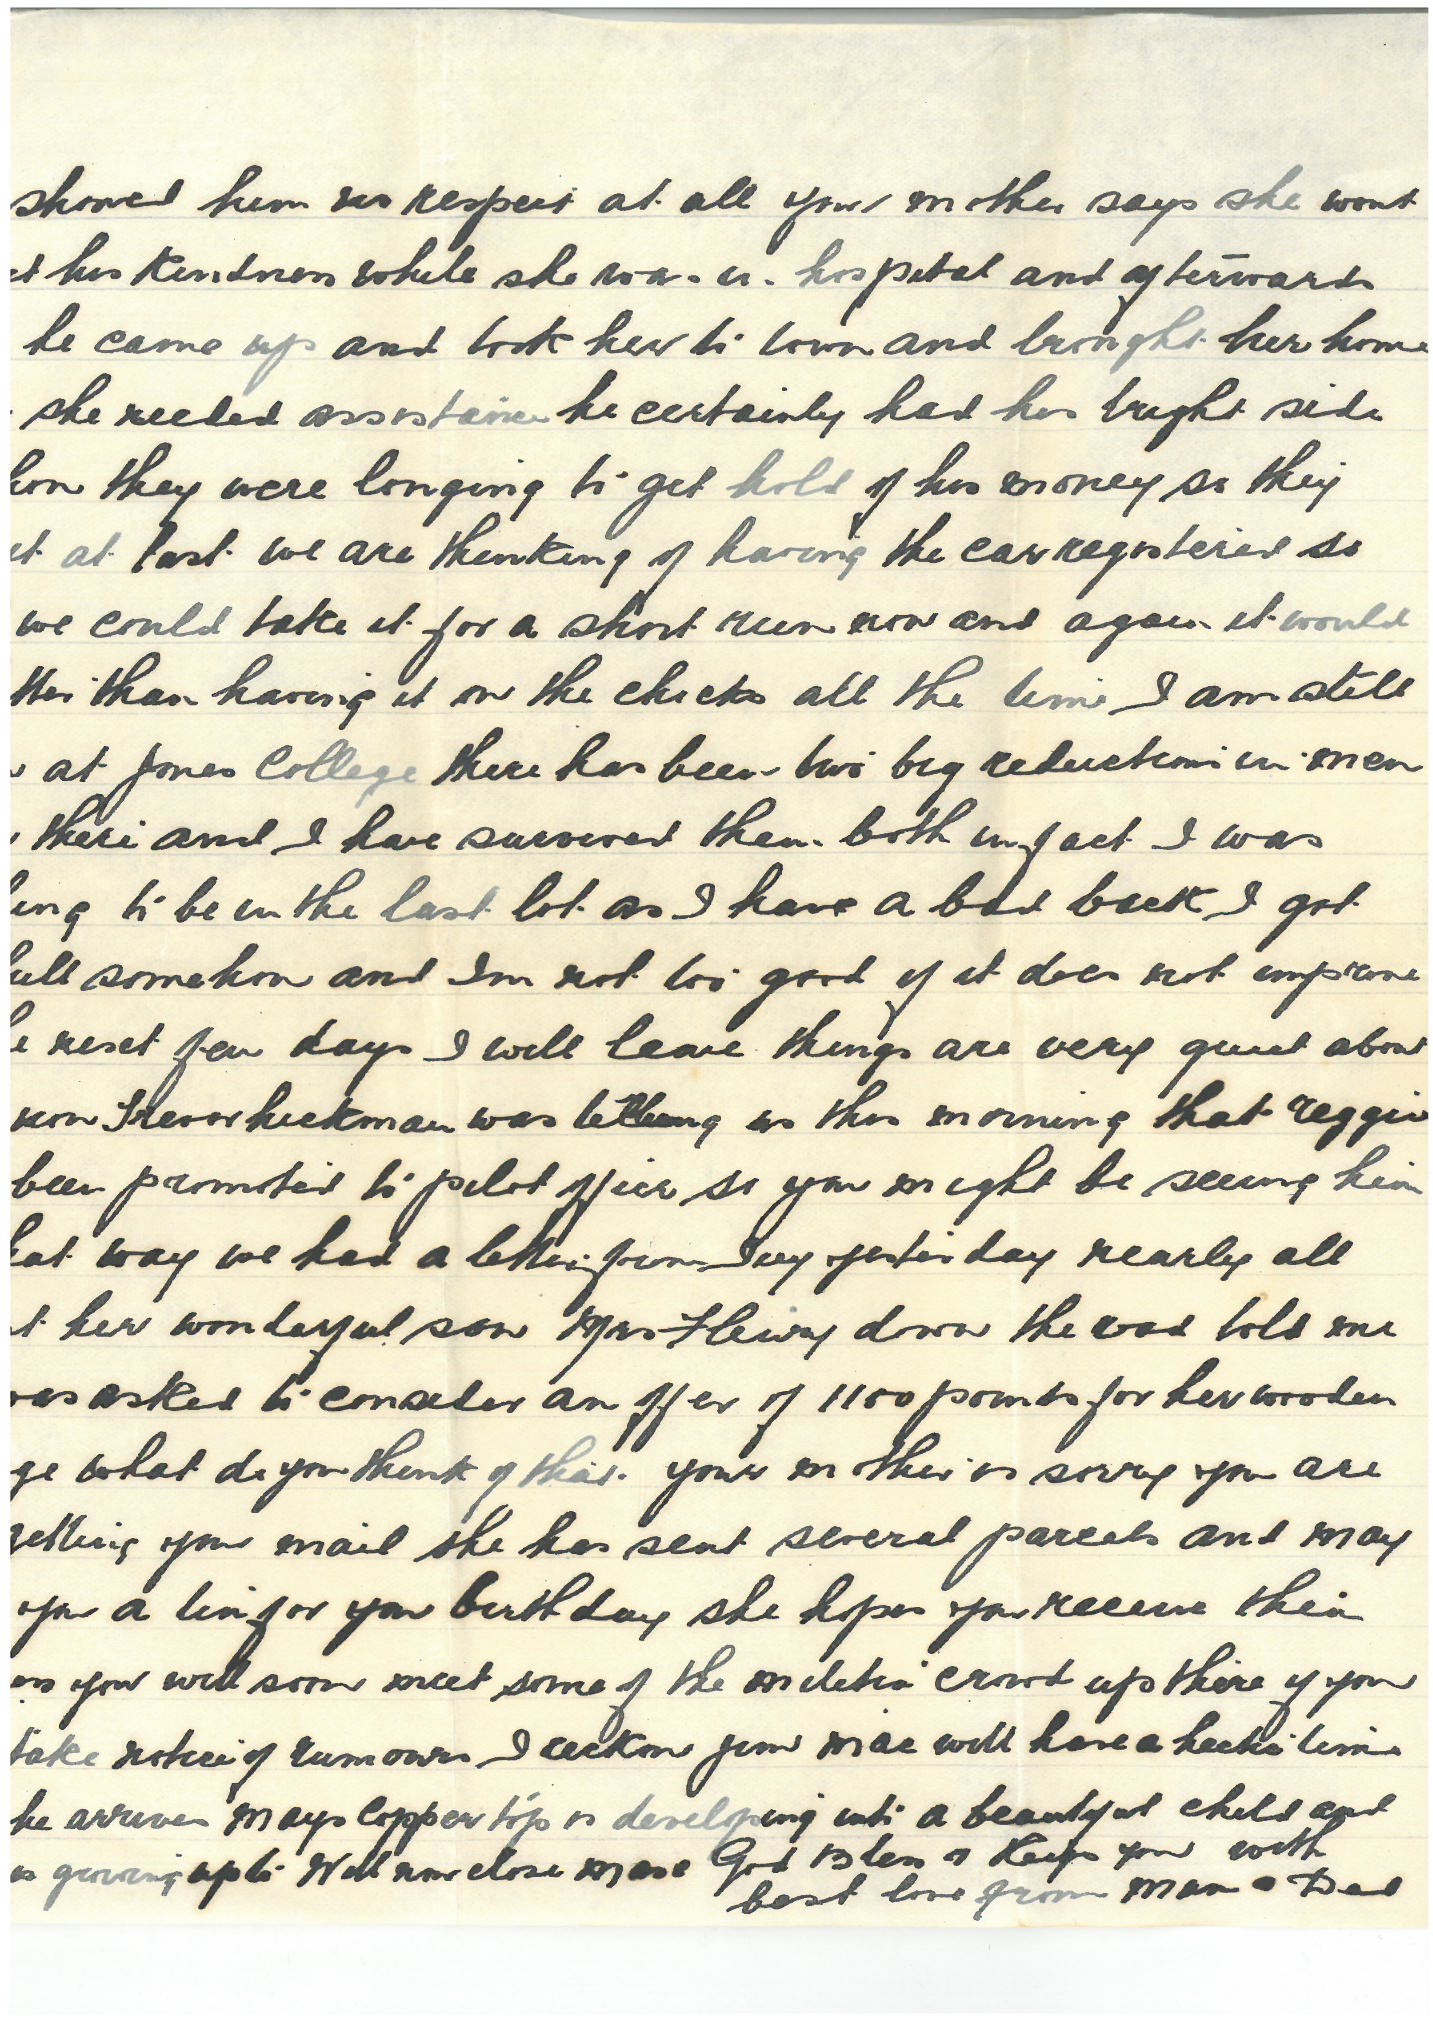 showed him no respect at all your mother says she wont
his kindness while she was in hospital and afterwards
he came up and took her to town and brought her home
she needed assistance he certainly had his bright side
they were longing to get hold of his money so they
at last we are thinking of having the car registered so
we could take it for a short run now and again it would
than having it on the chocks all the time I am still
at Jones College there has been two big reductions in men
there and I have survived them both in fact I was
to be in the last lot as I have a bad back I got
somehow and Im not too good if it does not improve
next few days I will leave things are very quiet about
now Trevor hickman was telling us this morning that reggie
been promoted to pilot officer so you might be seeing him
way we had a letter from Ivy yesterday nearly all
her wonderful son Mrs down the road told me
was asked to consider an offer of 1100 pounds for her wooden
what do you think of that. your mother is sorry you are
getting your mail she has sent several parcels and may
you a tin for your birthday she hopes you receive them
you will soon meet some of the militia crowd up there if you
take notice of rumours I reckon your mae will have a hectic time
he arrives mays Copper top is developing into a beautiful child and
is growing up to Will now close mae God bless & Keep you with
best love from Mum & Dad